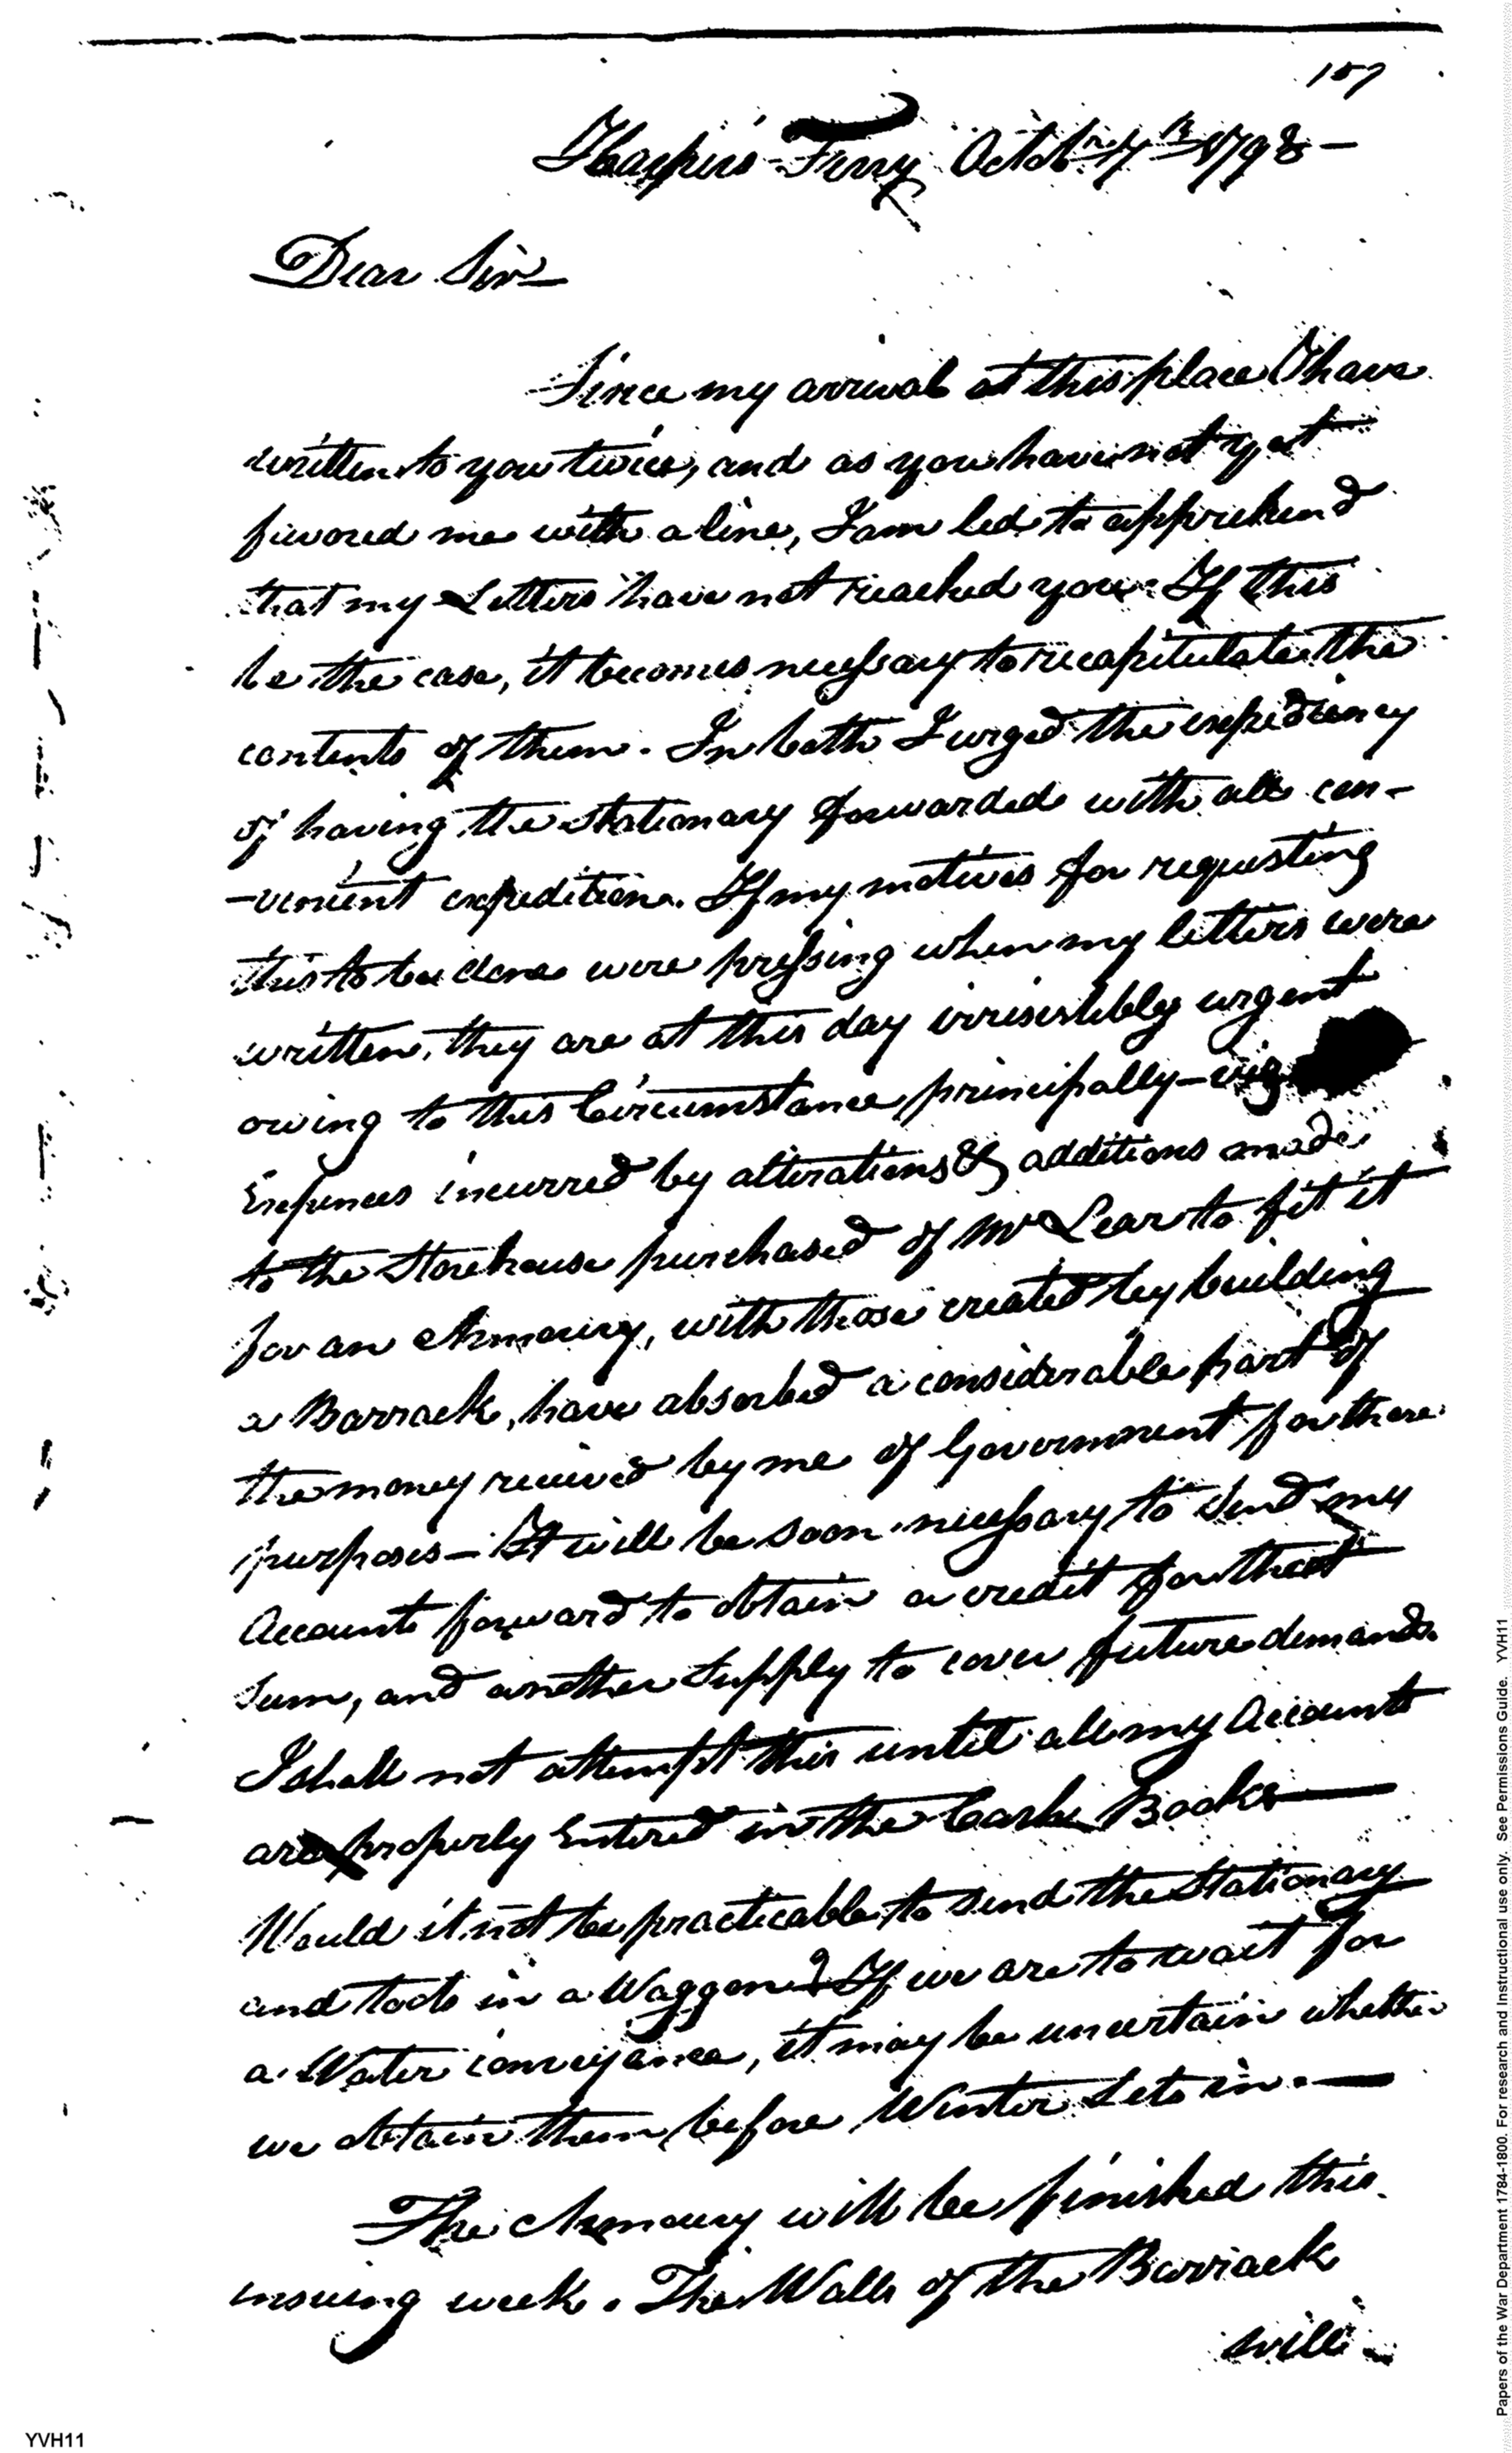 157
Harper's Ferry Octobr. 7th 1798 —
Dear Sir —
Since my arrival at this place I have
written to you twice, and as you have not yet
favored me with a line, I am led to apprehend
that my Letters have not reached you. If this
be the case, it becomes necessary to recapitulate the
contents of them. In both I urged the expediency
of having the stationary forwarded with all con-
-venient expedition. If my motives for requesting
this to be done were pressing when my letters were
written, they are at this day irresistibly urgent
owing to this Circumstance principally — viz
Expences incurred by alterations & additions made
to the Storehouse purchased of Mr Lear to fit it
for an Armoury, with those created by building
a Barrack, have absorbed a considerable part of
the money received by me of Government for there
purposes — It will be soon necessary to send my
Accounts forward to obtain a credit for that
Sum, and another Supply to cover future demands.
I shall not attempt this until all my Accounts
are properly Entered in the Cash Books —
Would it not be practicable to send the Stationary
and tools in a Waggon? If we are to wait for
a Water conveyance, it may be uncertain whether
we obtain them before Winter Sets in. —
The Armoury will be finished this
insuing week. The Walls of the Barrack
will
YVH11
Papers of the War Department 1784-1800. For research and Instructional use only. See Permissions Guide. YVH11